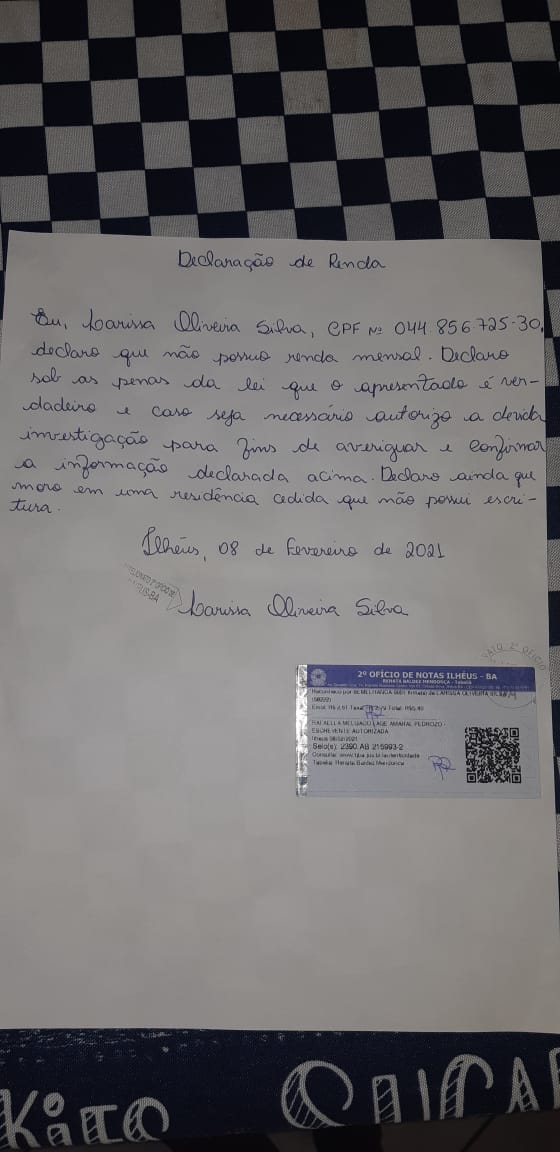 Declaração de Renda
Eu, Larissa Oliveira Silva, CPF Nº 044.856.725-30,
declaro que não possuo renda mensal. Declaro
sob as penas da lei que o apresentado é ver-
dadeiro e caso seja necessário autorizo a devida
investigação para fins de averiguar e confirmar
a informação declarada acima. Declaro ainda que
moro em uma residência cedida que não possui escri-
tura.
Ilhéus, 08 de Fevereiro de 2021
Larissa Oliveira Silva
2º OFÍCIO DE NOTAS ILHÉUS - BA
RENATA BALDEZ MENDONÇA - Tabeliã
Reconheço por SEMELHANÇA 0001 firma(s) de LARISSA OLIVEIRA SILVA
ESCREVENTE AUTORIZADA
Ilhéus 08/02/2021
Selo(s): 2390.AB 215993-2
Tabeliã: Renata Baldez Mendonça
Kito